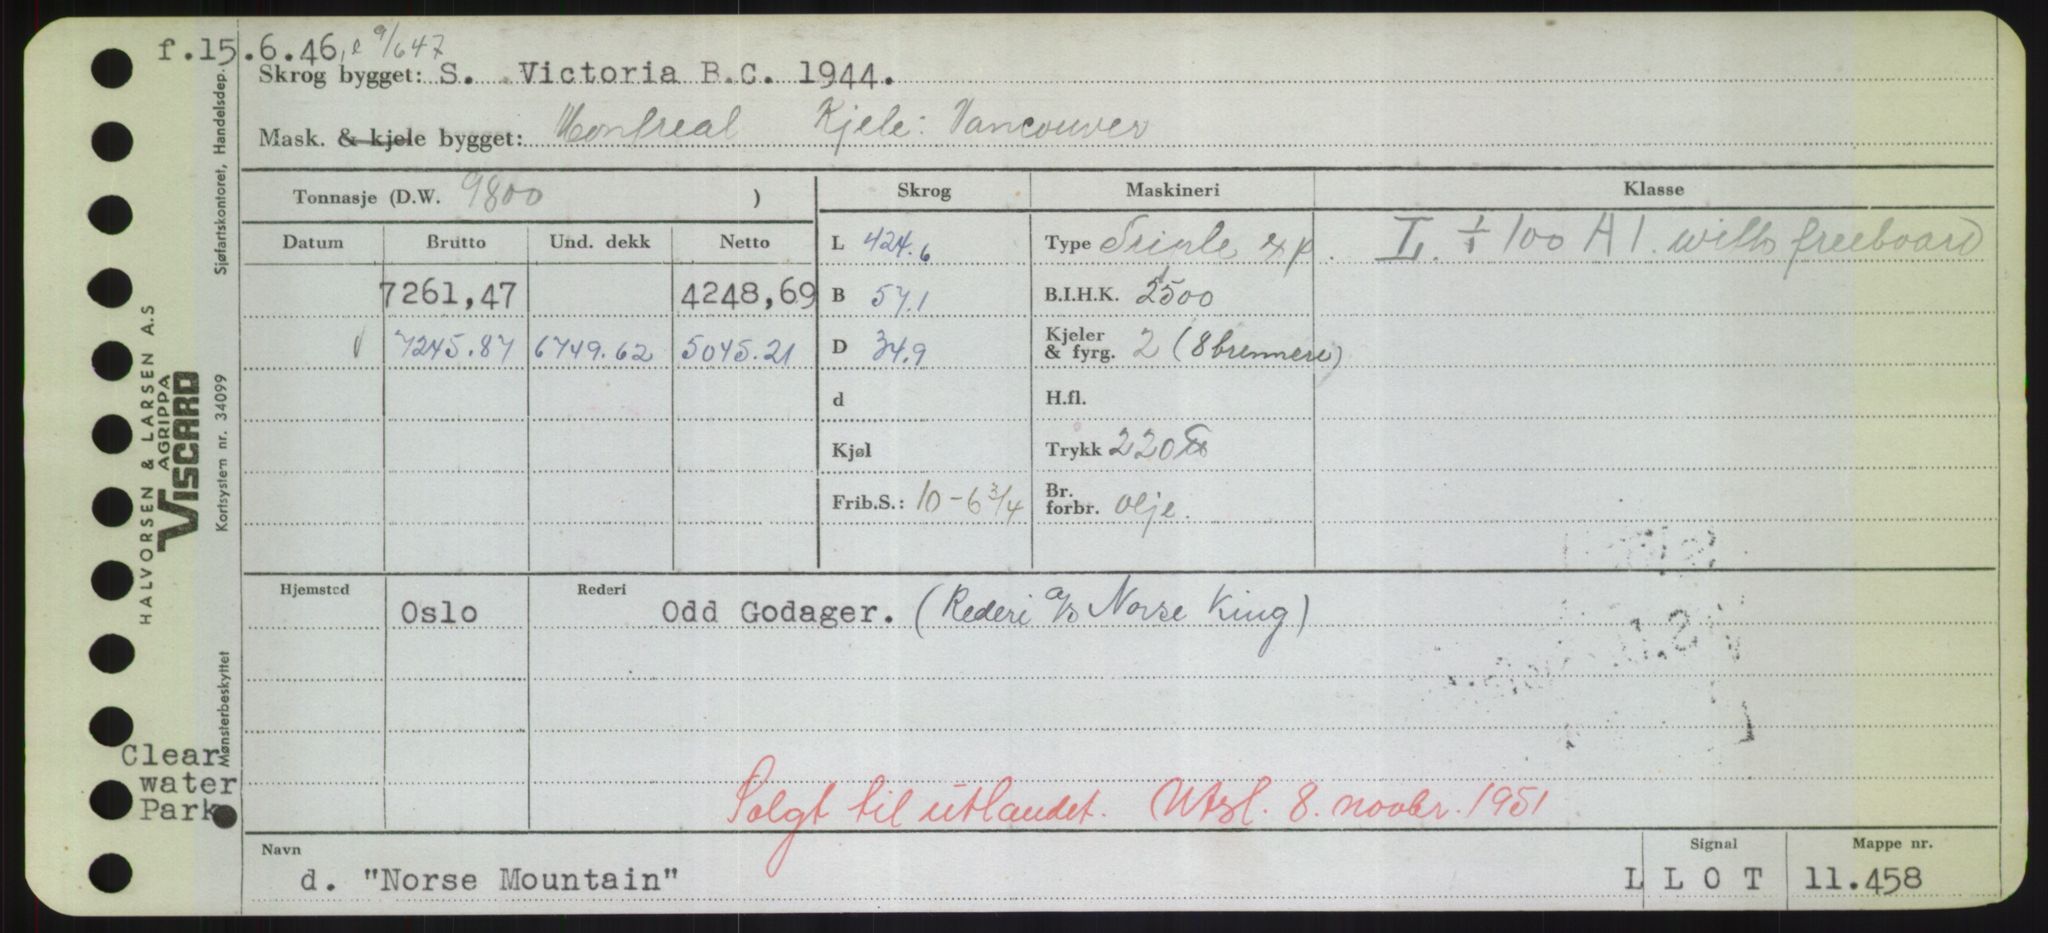 f.15.6.46, e 9/647
Skrog bygget: S. Victoria B.C. 1944.
Mask. & kjele bygget: Montreal Kjele: Vancouver
Tonnasje (D.W. 9800 ) Skrog Maskineri Klasse
Datum Brutto Und. dekk Netto L 424.6 Type Triple exp. L. + 100 A 1. with freeboard
7261,47 4248,69 B 57.1 B.I.H.K. 2500
7245.87 6749.62 5045.21 D 34.9 Kjeler & fyrg. 2 (8 brennere)
d H.fl.
Kjøl Trykk 220 lb
Frib.S.: 10-6 3/4 Br. forbr. olje.
Hjemsted Oslo Rederi Odd Godager. (Rederi a/s Norse King)
Solgt til utlandet. Utsl. 8. novbr. 1951
Navn Signal Mappe nr.
d. "Norse Mountain" L L O T 11.458
Clear
water
Park
HALVORSEN & LARSEN A.S
AGRIPPA
VISCARD
Sjøfartskontoret, Handelsdep.
Kortsystem nr. 34099
Mønsterbeskyttet